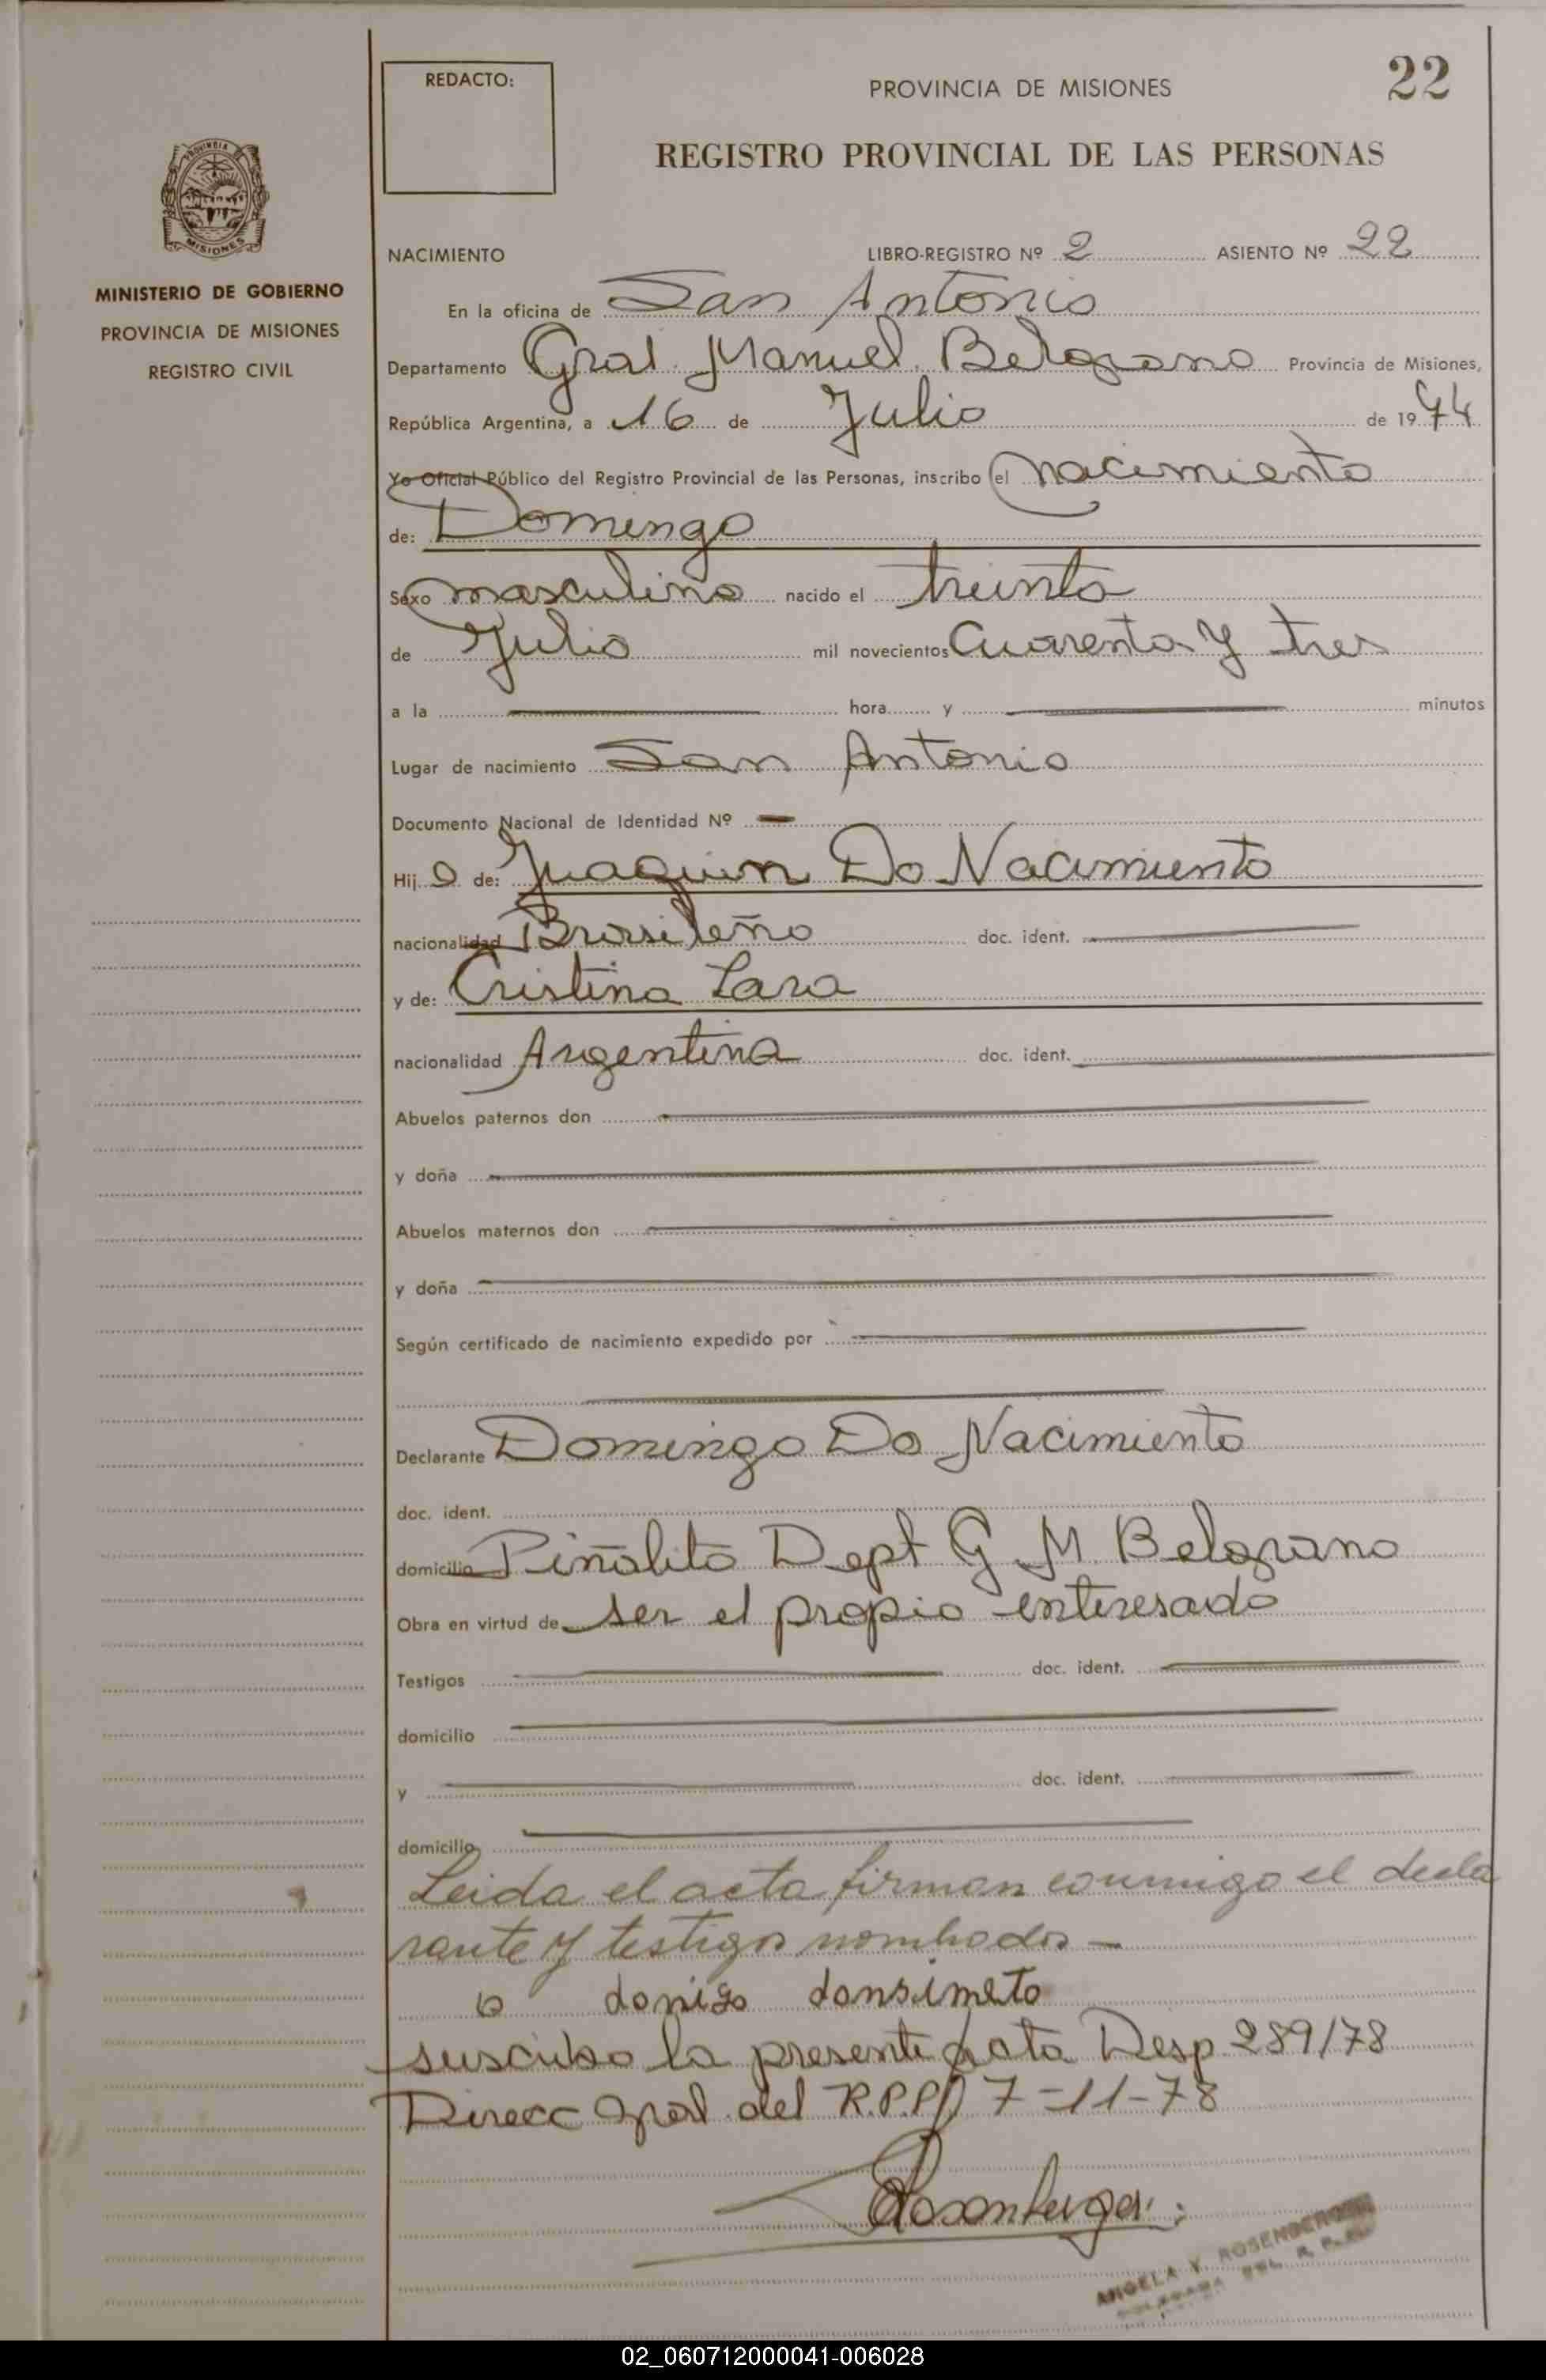 REDACTO:
PROVINCIA DE MISIONES
22
REGISTRO PROVINCIAL DE LAS PERSONAS
PROVINCIA DE
MISIONES
MINISTERIO DE GOBIERNO
PROVINCIA DE MISIONES
REGISTRO CIVIL
NACIMIENTO LIBRO-REGISTRO Nº 2 ASIENTO Nº 22
En la oficina de San Antonio
Departamento Gral. Manuel Belgrano Provincia de Misiones,
República Argentina, a 16 de Julio de 1974
Yo Oficial Público del Registro Provincial de las Personas, inscribo el nacimiento
de: Domingo
Sexo masculino nacido el treinta
de Julio mil novecientos Cuarenta y tres
a la hora y minutos
Lugar de nacimiento San Antonio
Documento Nacional de Identidad Nº —
Hijo de: Juaquin Do Nacimiento
nacionalidad Brasileño doc. ident.
y de: Cristina Lara
nacionalidad Argentina doc. ident.
Abuelos paternos don
y doña
Abuelos maternos don
y doña
Según certificado de nacimiento expedido por
Declarante Domingo Do Nacimiento
doc. ident.
domicilio Piñalito Dept G M Belgrano
Obra en virtud de ser el propio enteresado
Testigos doc. ident.
domicilio
y doc. ident.
domicilio
Leida el acta firman conmigo el decla
rante y testigos nombados —
donigo donsimeto
suscribo la presente acta Desp. 289/78
Direcc Gral. del R.P.P. 7-11-78
Rosenberger
ANGELA Y. ROSENBERGER
DELEGADA DEL R. P.
02_060712000041-006028